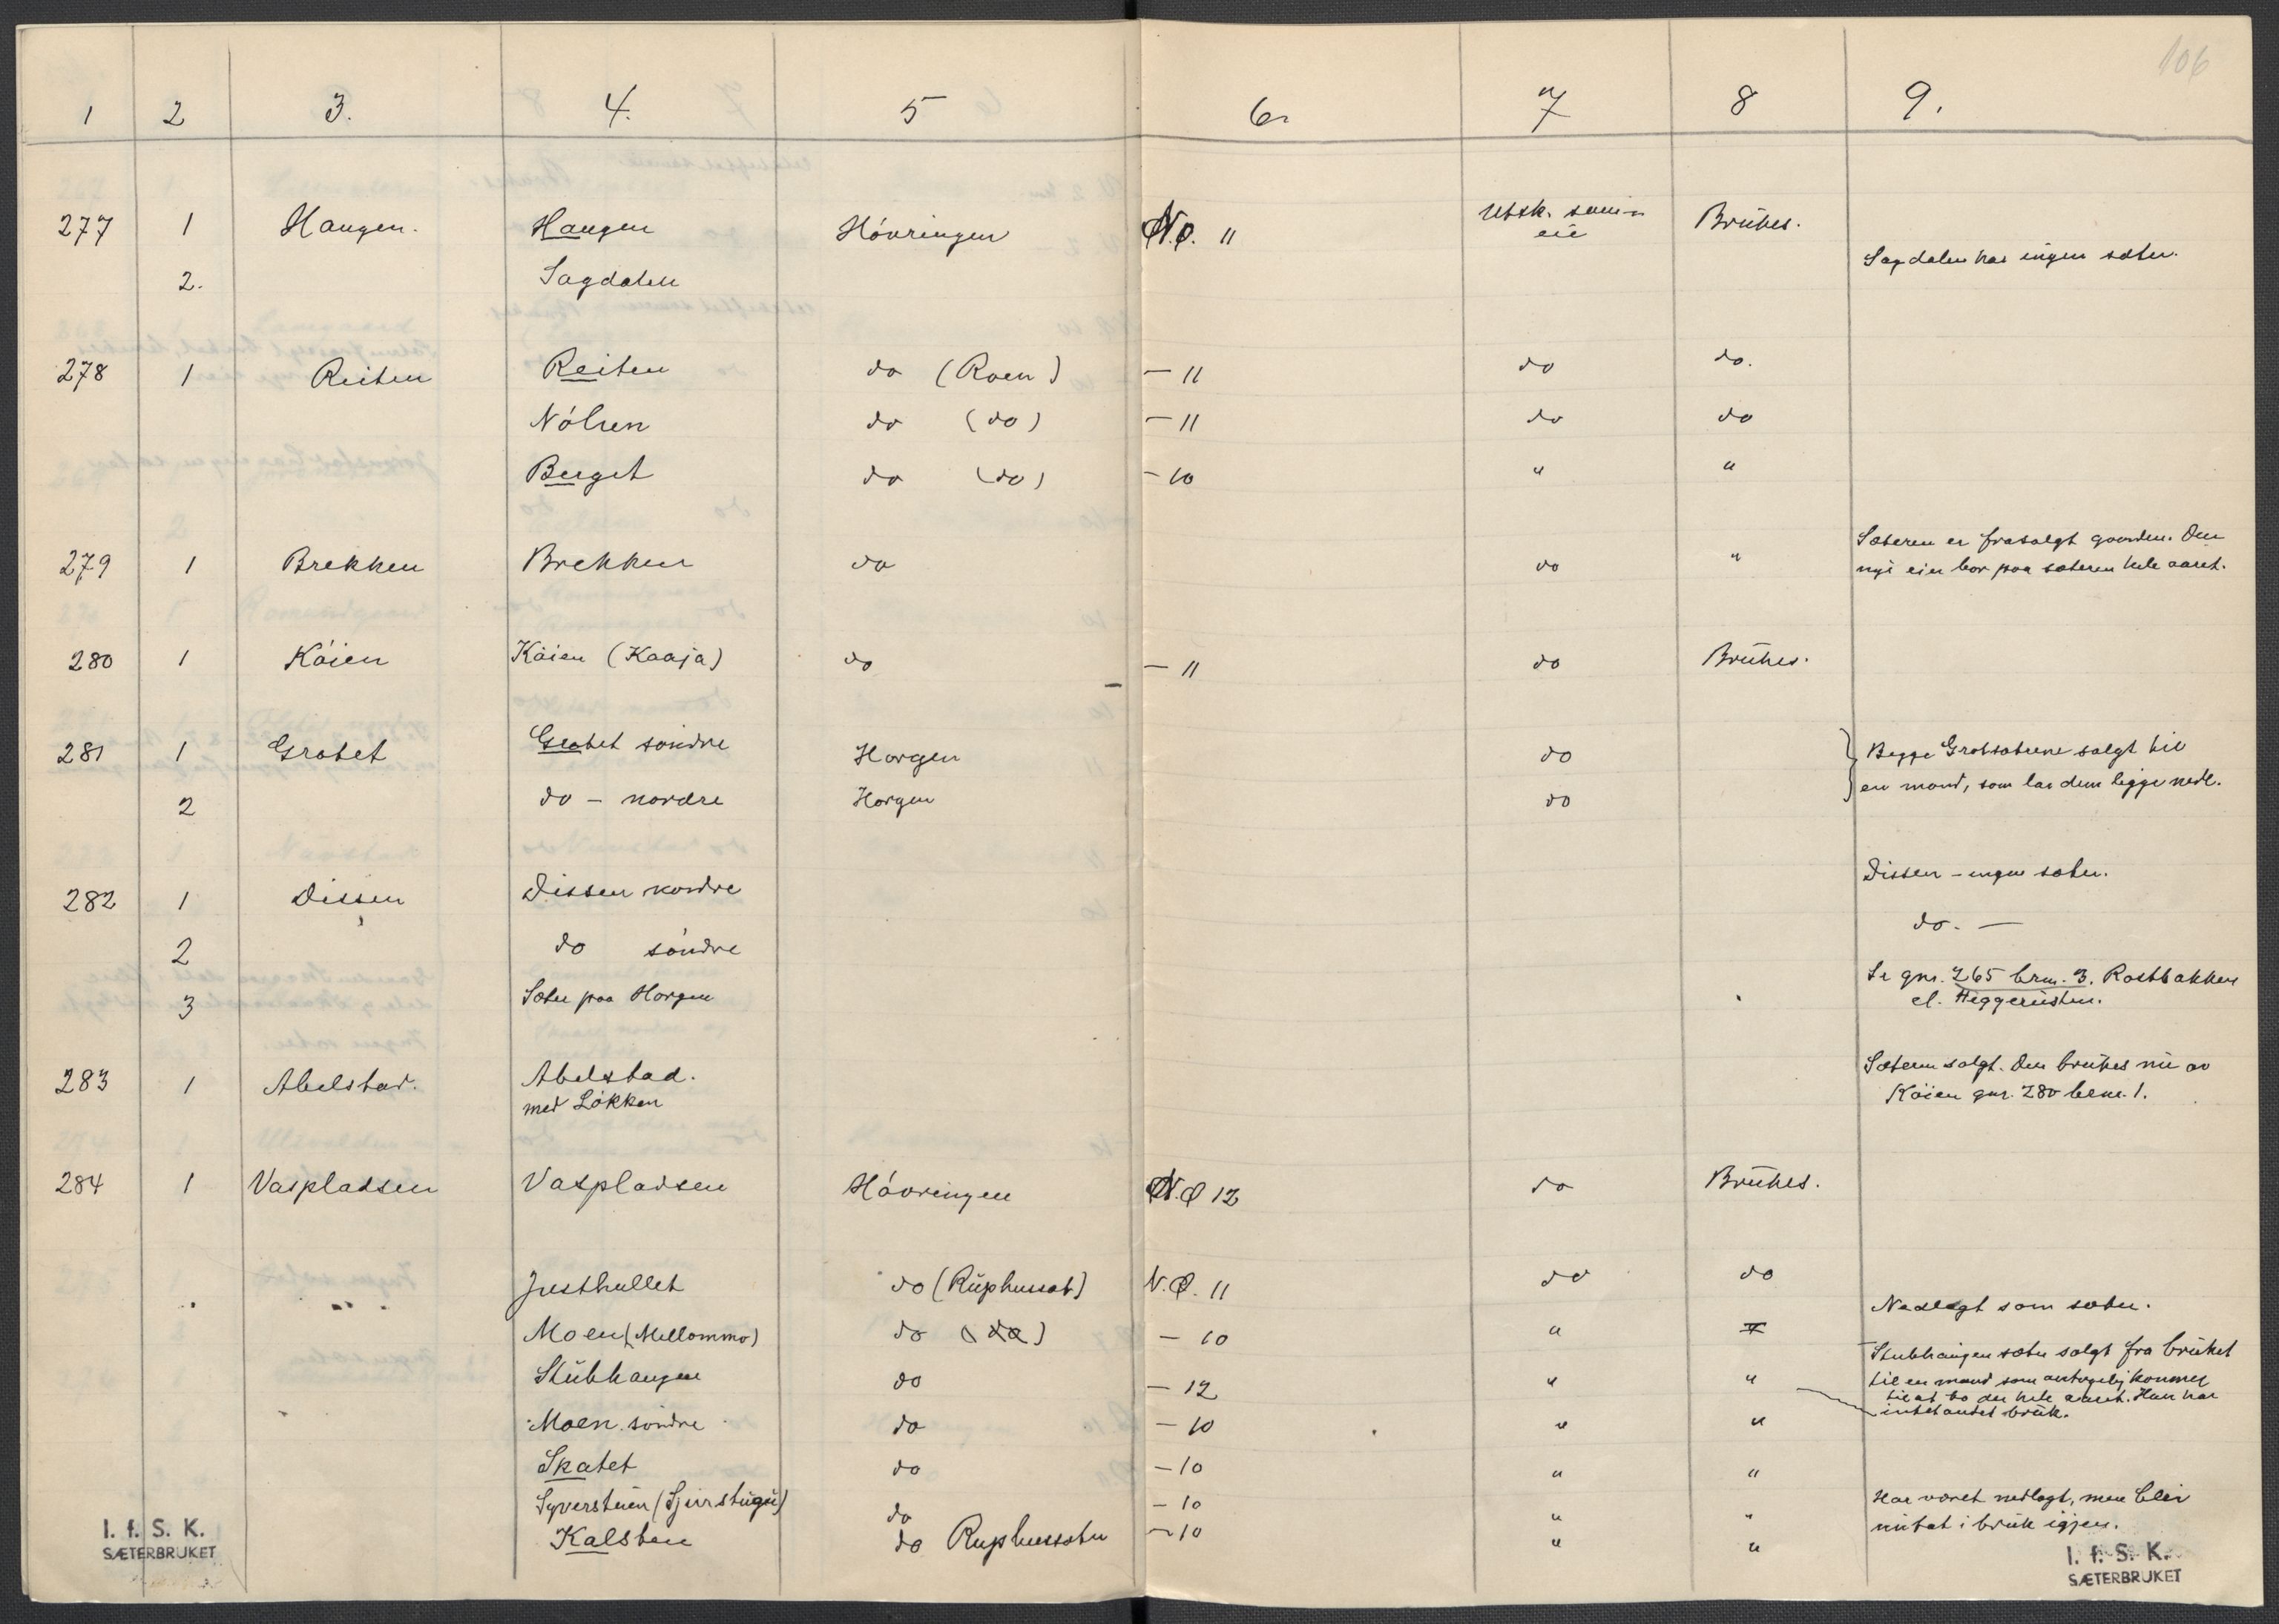 106
1 2 3. 4. 5 6. 7 8 9.
277 1 Haugen. Haugen Hóvringen N.Ø. 11 Utsk. sam-eie Brükes.
2. Sagdalen Sagdalen har ingen sæter.
278 1 Reiten Reiten do (Roen) — 11 do do.
Nólren do (do) — 11 do do
Berget do (do) — 10 " "
279 1 Brekken Brekken do do " Sæteren er frasalgt gaarden. Den
nye eier bor paa sæteren hele aaret.
280 1 Kóien Köien (Kaaja) do — 11 do Brükes.
281 1 Grotet Grotet sóndre Horgen do Begge Grotsætrene salgt til
2 do - nordre Horgen do en mand, som lar dem ligge nedl.
282 1 Dissen Dissen nordre Dissen - ingen sæter.
2 do sóndre do. —
3 Sæter paa Horgen Se gnr. 265 brn. 3. Rostbakken
el. Heggerüsten.
283 1 Abelstad. Abelstad. Sæteren salgt. Den brükes nü av
med Lökken Köien gnr. 280 brn. 1.
284 1 Vaspladsen Vaspladsen Hóvringen N.Ø 12 do Brükes.
Justhullet do (Rüphussæt) N.Ø. 11 do do
Nedlagt som sæter.
Moen (Mellommo) do (do) — 10 "
Stübhaugen do — 12 " " Stubhaugen sæter salgt fra brüket
til en mand som antagelig kommer
til at bo der hele aaret. Han har
intet andet brük.
Moen sóndre do — 10 " "
Skatet do — 10 " "
Syversteien (Sjurstügü) do — 10 " " Har været nedlagt, men blir
Kalsten do Ruphussæter — 10 " " nü tat i brük igjen.
I. f. S. K.
SÆTERBRUKET
I. f. S. K.
SÆTERBRUKET